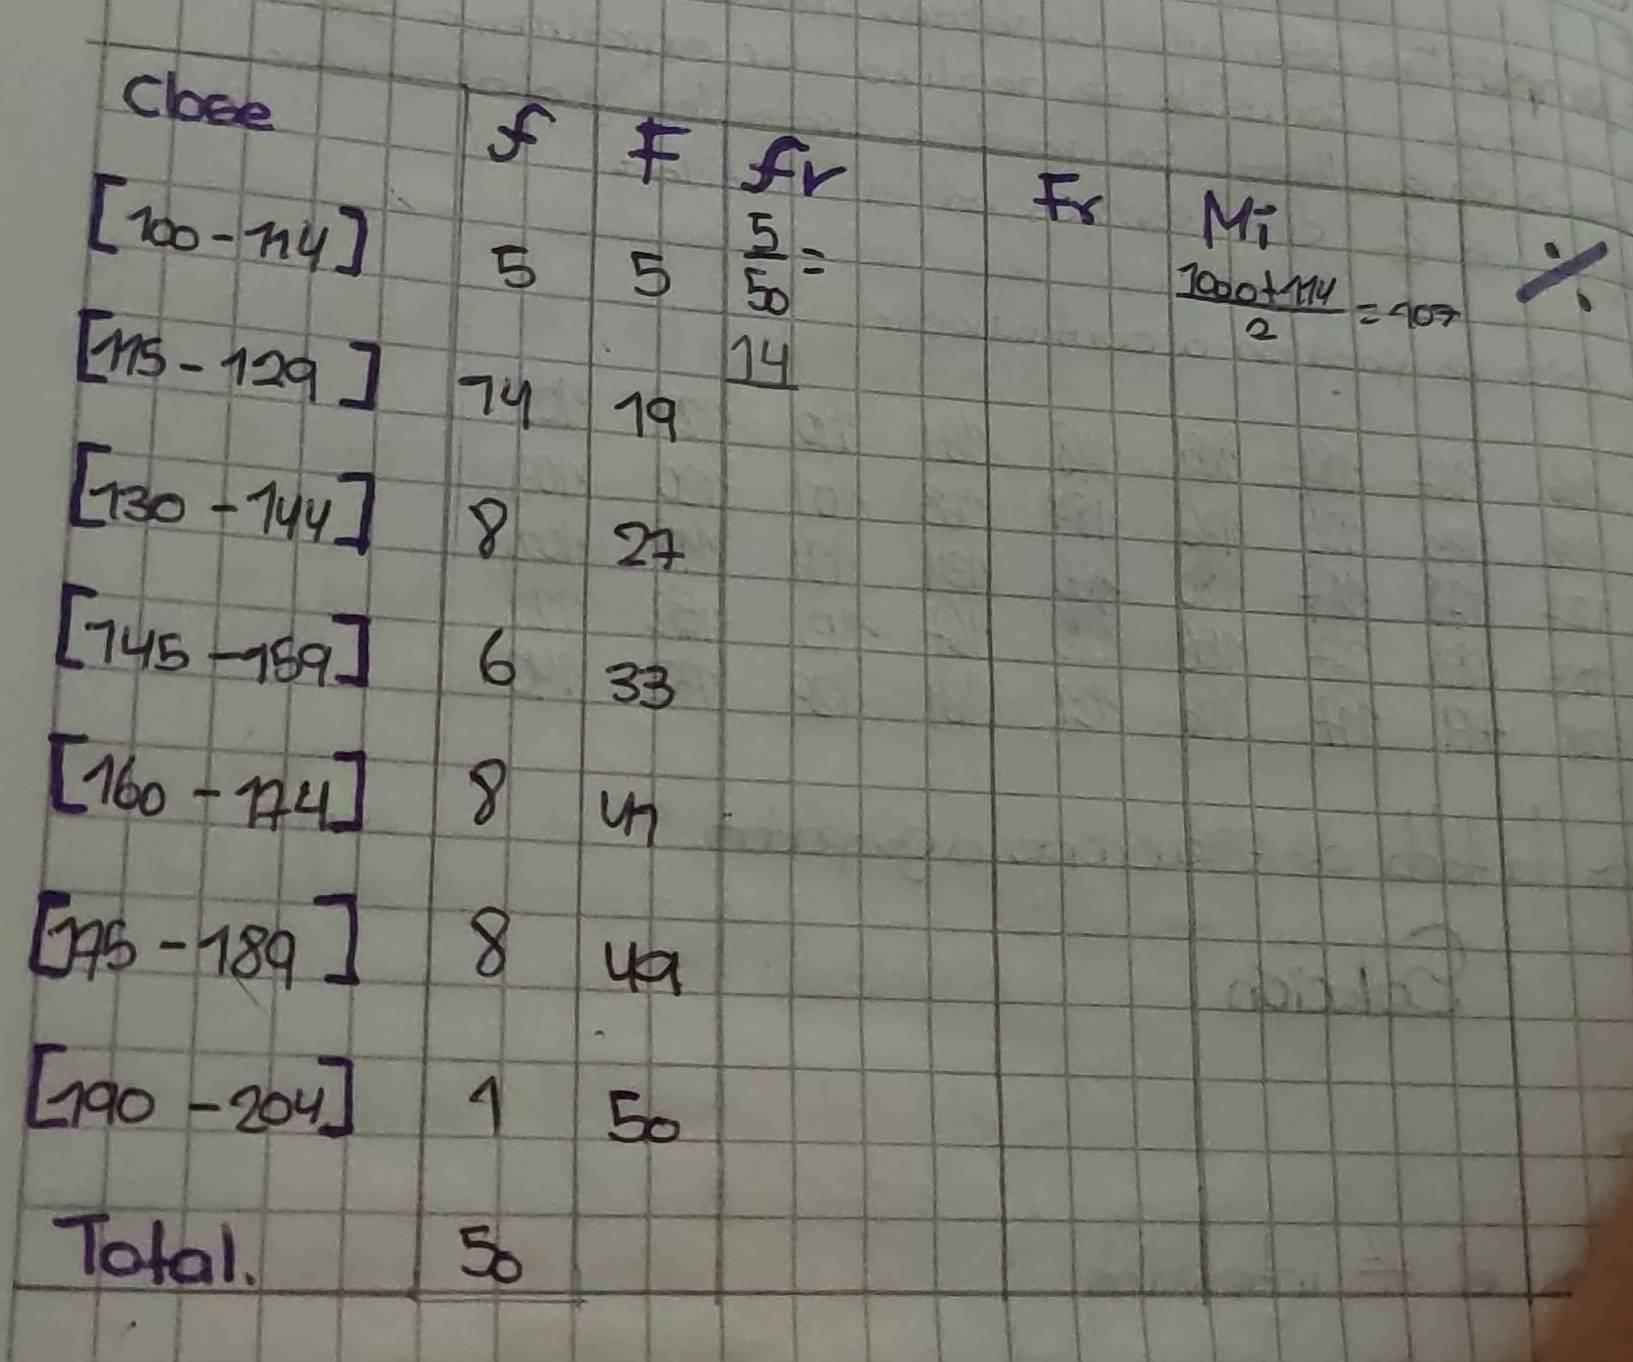 Clase f F fr Fr Mi %
[100-114] 5 5 5/50= 1000+114/2=107
[115-129] 14 19 14
[130-144] 8 27
[145-159] 6 33
[160-174] 8 41
[175-189] 8 49
[190-204] 1 50
Total. 50